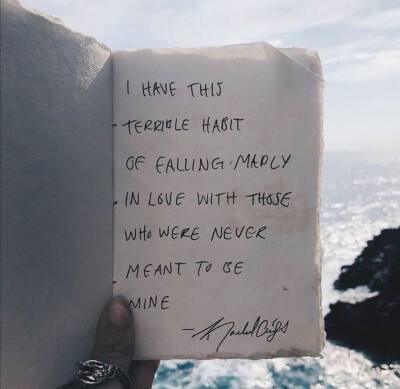 I HAVE THIS
TERRIBLE HABIT
OF FALLING MADLY
IN LOVE WITH THOSE
WHO WERE NEVER
MEANT TO BE
MINE